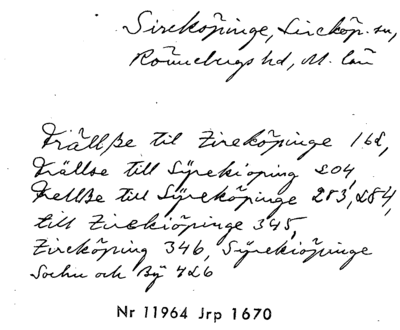 Sireköpinge, Sireköp. sn,
Rönnebergs hd, M. län
Trällße til Zireköpinge 162,
Trällse till Syrekiöping 204,
Trellße till Syreköpinge 283, 284,
till Zirekiöpinge 345,
Zireköping 346, Syrekiöpinge
Sochn och By 426
Nr 11964 Jrp 1670